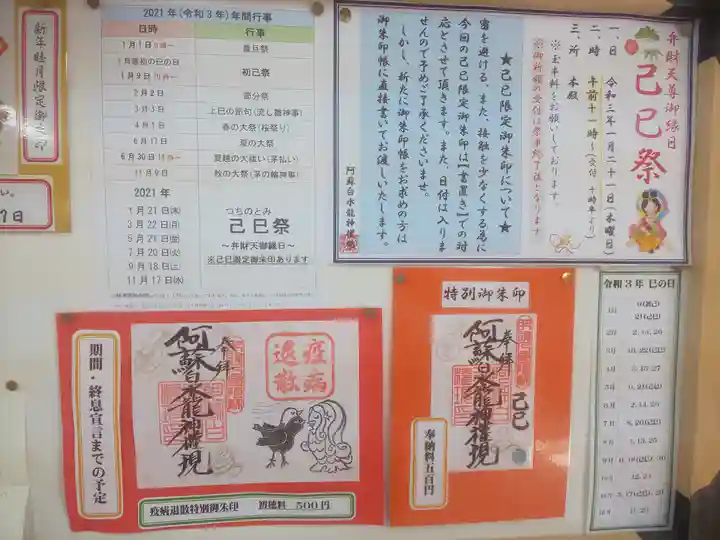 新年睦月限定御朱印
2021年(令和3年)年間行事
日時 行事
1月1日 歳旦祭
1月最初の巳の日
1月9日 初巳祭
2月2日 節分祭
3月3日 上巳の節句(流し雛神事)
4月1日 春の大祭(桜祭り)
6月17日 夏の大祭
6月30日 夏越の大祓い(茅払い)
11月9日 秋の大祭(茅の輪神事)
2021年
1月21日(木)
3月22日(月)
5月21日(金)
7月20日(火)
9月18日(土)
11月17日(水)
つちのとみ
己巳祭
~弁財天御縁日~
※己巳限定御朱印あります
弁財天尊御縁日
己巳祭
一、日 令和三年一月二十一日(木曜日)
二、時 午前十一時~(受付 十時半より)
三、所 本殿
※玉串料をお願いしております。
※御祈願の受付は祭事終了後となります
★己巳限定御朱印について★
密を避ける、また、接触を少なくする為に
今回の己巳限定御朱印は【書置き】での対
応とさせて頂きます。また、日付は入りま
せんので予めご了承くださいませ。
しかし、新たに御朱印帳をお求めの方は
御朱印帳に直接書いてお渡しいたします。
阿蘇白水龍神權現
期間・終息宣言までの予定
奉拝
阿蘇白水龍神權現
疫病
退散
疫病退散特別御朱印 初穂料 500円
特別御朱印
奉拝
阿蘇白水龍神權現
己巳
奉納料五百円
令和3年 巳の日